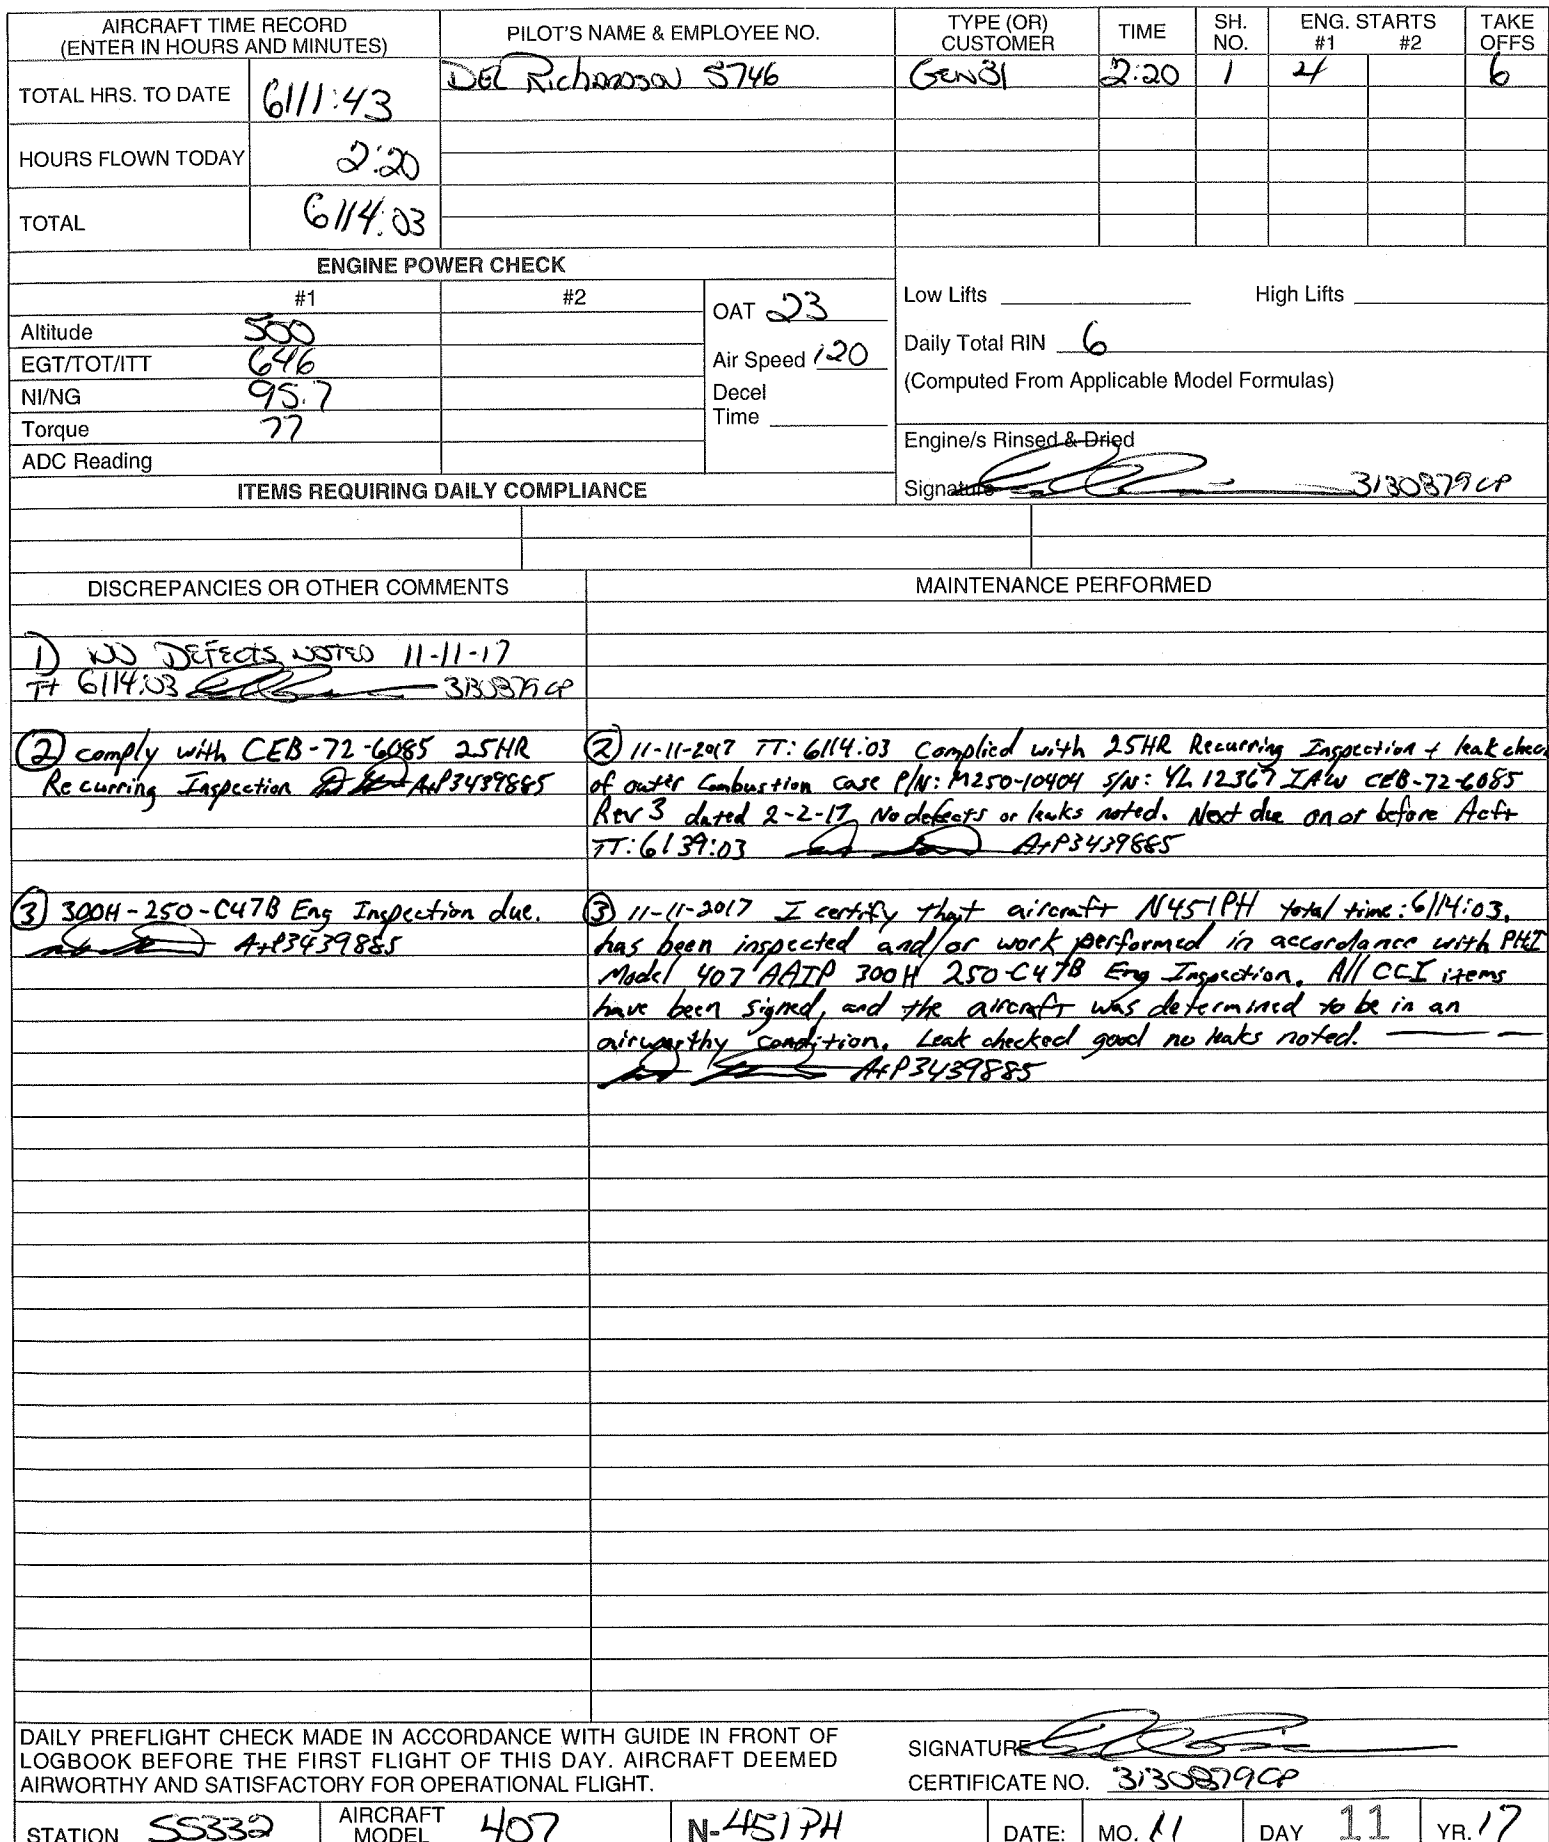 AIRCRAFT TIME RECORD
(ENTER IN HOURS AND MINUTES)
PILOT'S NAME & EMPLOYEE NO.
TYPE (OR)
CUSTOMER
TIME
SH.
NO.
ENG. STARTS
#1 #2
TAKE
OFFS
TOTAL HRS. TO DATE 6111:43
DEL RICHARDSON 5746 2:20 1 4 6
HOURS FLOWN TODAY 2:20
TOTAL 6114:03
ENGINE POWER CHECK
#1 #2
Altitude 500
EGT/TOT/ITT 646
NI/NG 95.7
Torque 77
ADC Reading
OAT 23
Air Speed 120
Decel
Time
Low Lifts High Lifts
Daily Total RIN 6
(Computed From Applicable Model Formulas)
Engine/s Rinsed & Dried
Signature 3130879CP
ITEMS REQUIRING DAILY COMPLIANCE
DISCREPANCIES OR OTHER COMMENTS
MAINTENANCE PERFORMED
1) NO DEFECTS NOTED 11-11-17
TT 6114:03 3130879CP
(2) comply with CEB-72-6085 25HR
Recurring Inspection A+P3439885
(2) 11-11-2017 TT: 6114:03 Complied with 25HR Recurring Inspection + leak check
of outer Combustion case P/N: M250-10404 S/N: YL12367 IAW CEB-72-6085
Rev 3 dated 2-2-17. No defects or leaks noted. Next due on or before Acft
TT: 6139:03 A+P3439885
(3) 300H-250-C47B Eng Inspection due.
A+P3439885
(3) 11-11-2017 I certify that aircraft N451PH total time: 6114:03.
has been inspected and/or work performed in accordance with PHI
Model 407 AAIP 300H 250-C47B Eng Inspection. All CCI items
have been signed, and the aircraft was determined to be in an
airworthy condition. Leak checked good no leaks noted.
A+P3439885
DAILY PREFLIGHT CHECK MADE IN ACCORDANCE WITH GUIDE IN FRONT OF
LOGBOOK BEFORE THE FIRST FLIGHT OF THIS DAY. AIRCRAFT DEEMED
AIRWORTHY AND SATISFACTORY FOR OPERATIONAL FLIGHT.
SIGNATURE
CERTIFICATE NO. 3130879CP
STATION SS332
AIRCRAFT
MODEL 407
N-451PH
DATE: MO. 11 DAY 11 YR. 17